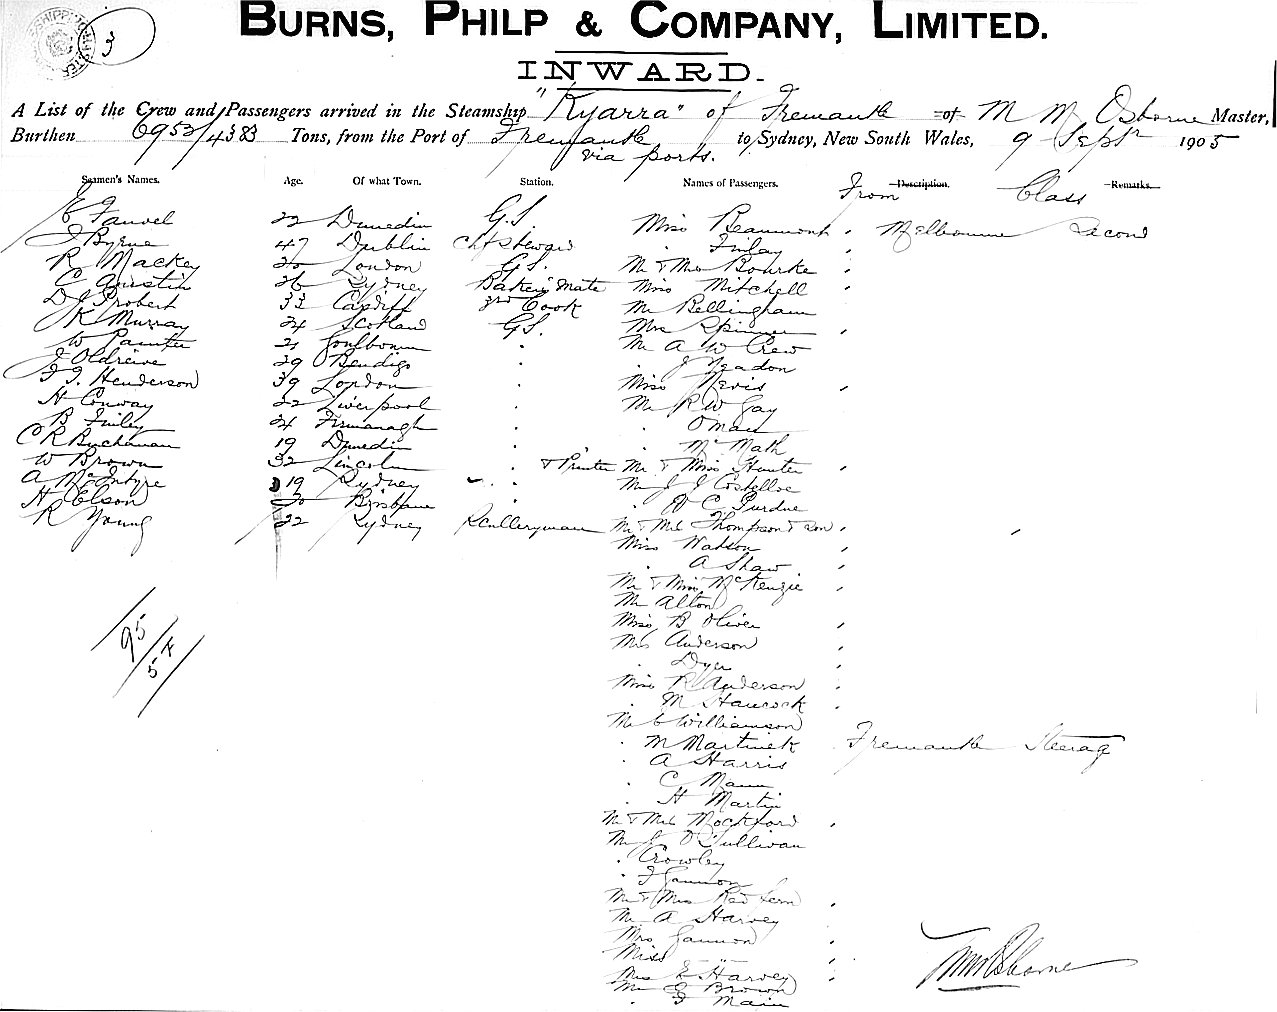 3
BURNS, PHILP & COMPANY, LIMITED.
INWARD.
A List of the Crew and Passengers arrived in the Steamship "Kyarra" of Fremantle of M M Osborne Master,
Burthen 6953/4383 Tons, from the Port of Fremantle to Sydney, New South Wales, 9 Septr 1905
via ports.
Seamen's Names. Age. Of what Town. Station. Names of Passengers. From Description. Class Remarks.
E Fauvel 22 Dunedin G.S. Miss Beaumont " Melbourne Second
J Byrne 47 Dublin Chf Steward " Finlay "
R Mackey 20 London G.S. Mr & Mrs Bourke "
C Austin 26 Sydney Bakers Mate Miss Mitchell "
D J Probert 33 Cardiff 3rd Cook Mr Bellingham
K Murray 24 Scotland G.S. Mrs Spinner "
W Painter 21 Goulbourn " Mr A W Crew
J Oldreive 29 Bendigo " J Neadon
J J. Henderson 39 London " Miss Nevis "
H Conway 22 Liverpool " Mr R W Gay
B Finley 24 Firmanagh " " Oman
C R Buchanan 19 Dunedin " " McMath
W Brown 32 Lincoln " & Printer Mr & Miss Hunter "
A McIntyre 19 Sydney " Mr J J Costelloe
H Elson 20 Brisbane " W C Purdue
R Young 22 Sydney Sculleryman Mr & Mrs Thompson & son " "
Miss Watson "
" A Shaw "
Mr & Miss McKenzie "
Mr Alton
95/57
Miss B Oliver "
Mrs Anderson "
" Dyer "
Miss R Anderson "
" M Hancock "
Mr C Williamson
" M Martinek Fremantle Steerage
" A Harris
" C Mann
" H Martin
Mr & Mrs Mockford "
Mr J O'Sullivan
" Crowley
" J Gannon
Mr & Mrs Redfern "
Mr A Harvey
Mrs Gannon "
Miss " "
Mrs E Harvey "
Mr G Brown
" J Main
MM Osborne